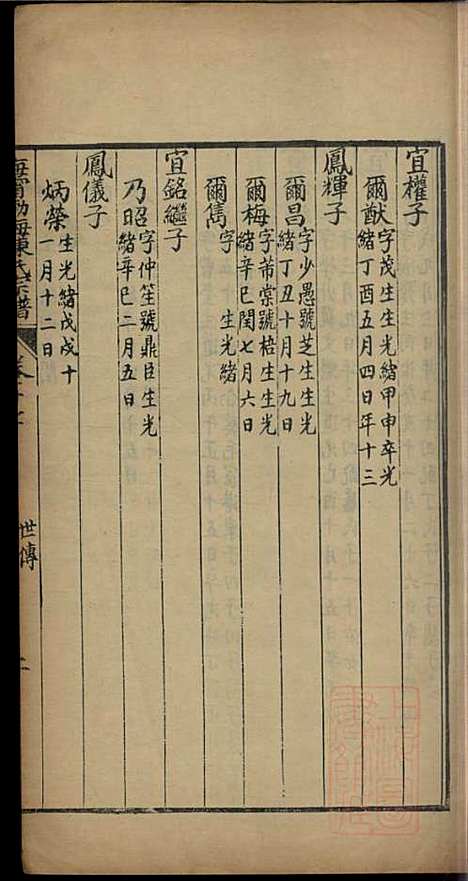 宜權子
爾猷
字茂生生光緒甲申卒光
緒丁酉五月四日年十三
鳳輝子
爾昌
字少愚號芝生生光
緒丁丑十月十九日
爾梅
字芾棠號梧生生光
緒辛巳閏七月六日
爾雋
字 生光緒
宜銘繼子
乃昭
字仲笙號鼎臣生光
緒辛巳二月五日
鳳儀子
炳榮
生光緒戊戌十
一月十二日
氏宗譜
世傳